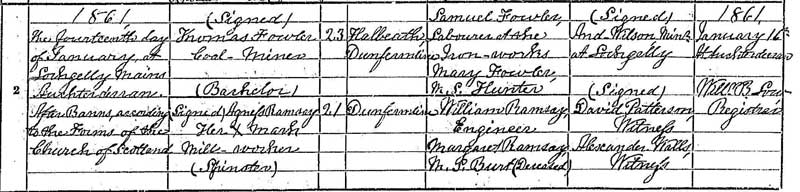 2
1861,
The fourteenth day
of January, at
Lochgelly Mains
Auchterderran.
After Banns, according
to the Forms of the
Church of Scotland
(Signed)
Thomas Fowler
Coal-Miner
(Bachelor)
(Signed) Agness Ramsay
Her X Mark
Mill-worker
(Spinster)
23
21
Hallbeath
Dunfermline
Dunfermline
Samuel Fowler,
Labourer at the
Iron-works
Mary Fowler,
M.S. Hunter
William Ramsay,
Engineer
Margaret Ramsay
M.S. Burt (Deceased)
(Signed)
And Wilson Minr.
at Lochgelly
(Signed)
David Patterson,
Witness
Alexander Watts,
Witness
1861,
January 16th
At Auchterderran
Willm B.
Registrar